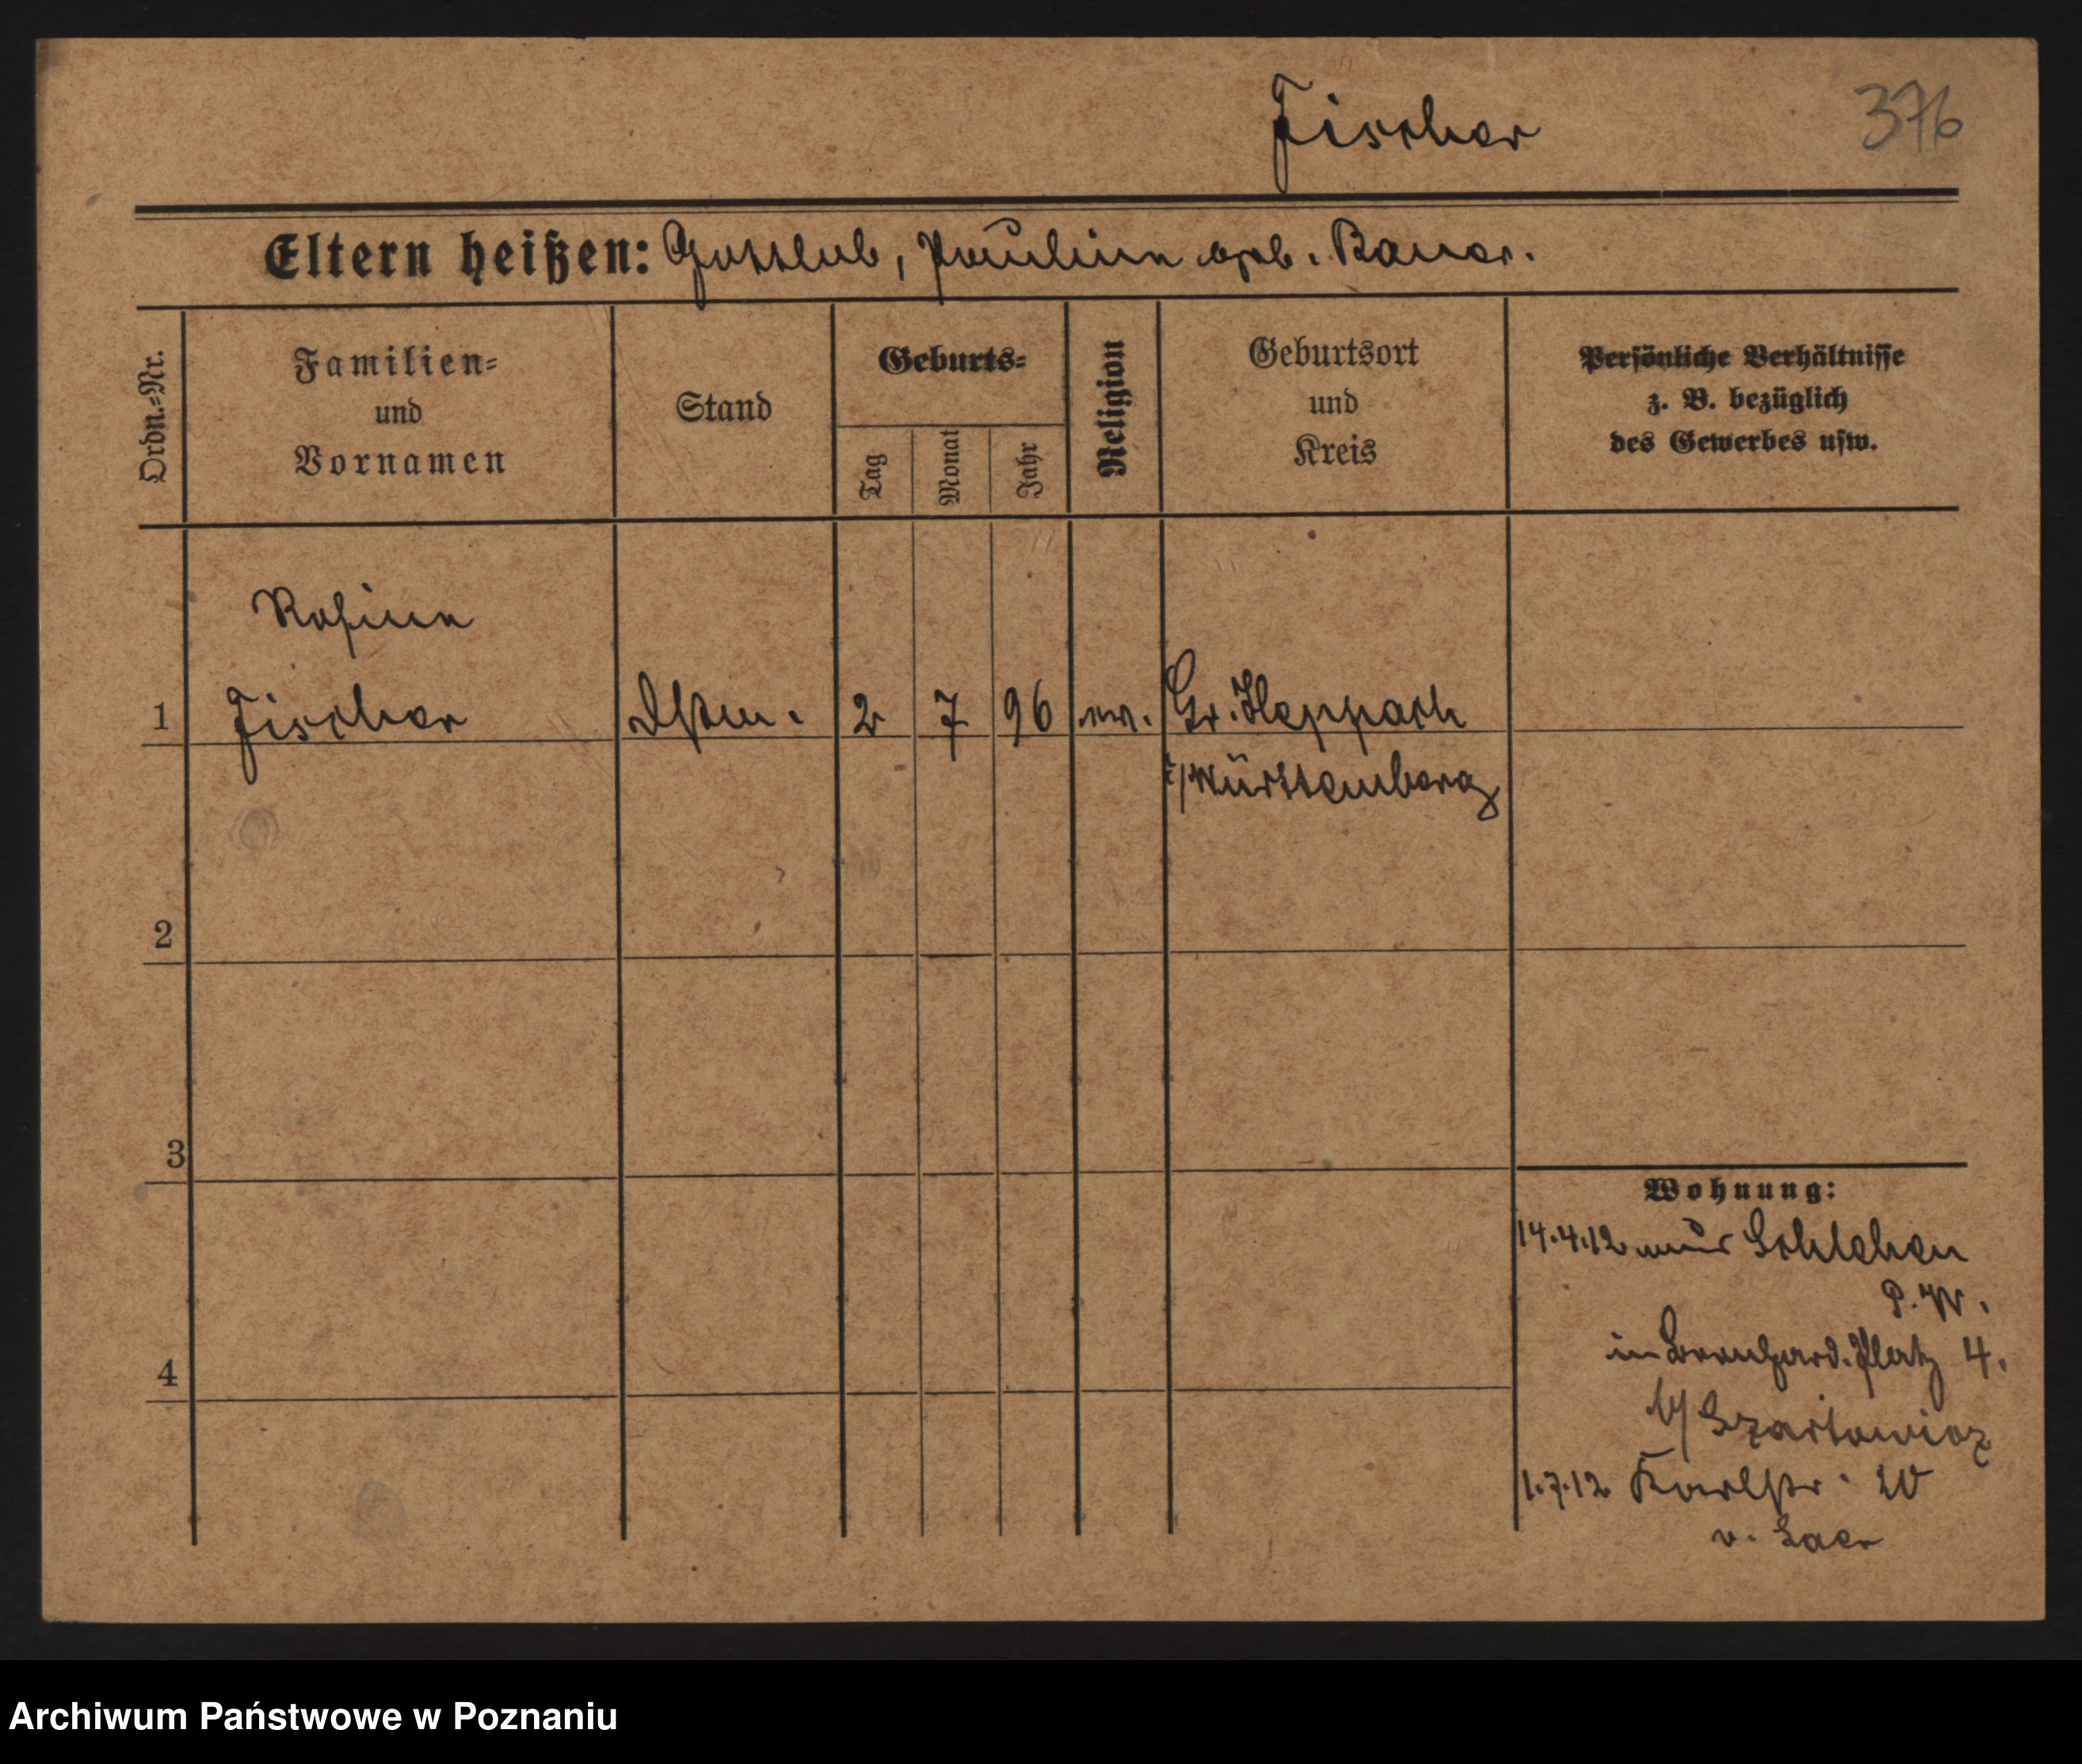 Fischer
376
Eltern heißen: Gottlieb, Pauline geb. Bauer.
Ordn.=Nr.
Familien=
und
Vornamen
Stand
Geburts=
Tag
Monat
Jahr
Religion
Geburtsort
und
Kreis
Persönliche Verhältnisse
z. B. bezüglich
des Gewerbes usw.
Rosine
1 Fischer Dstm. 2 7 96 ev. Gr. Heppach
i/Württemberg
2
3
4
Wohnung:
14.4.12 aus Schlehen
P. W.
in Bernhard. Platz 4.
b/ Szartowicz
1.7.12 Karlstr.
v. Laer
Archiwum Państwowe w Poznaniu